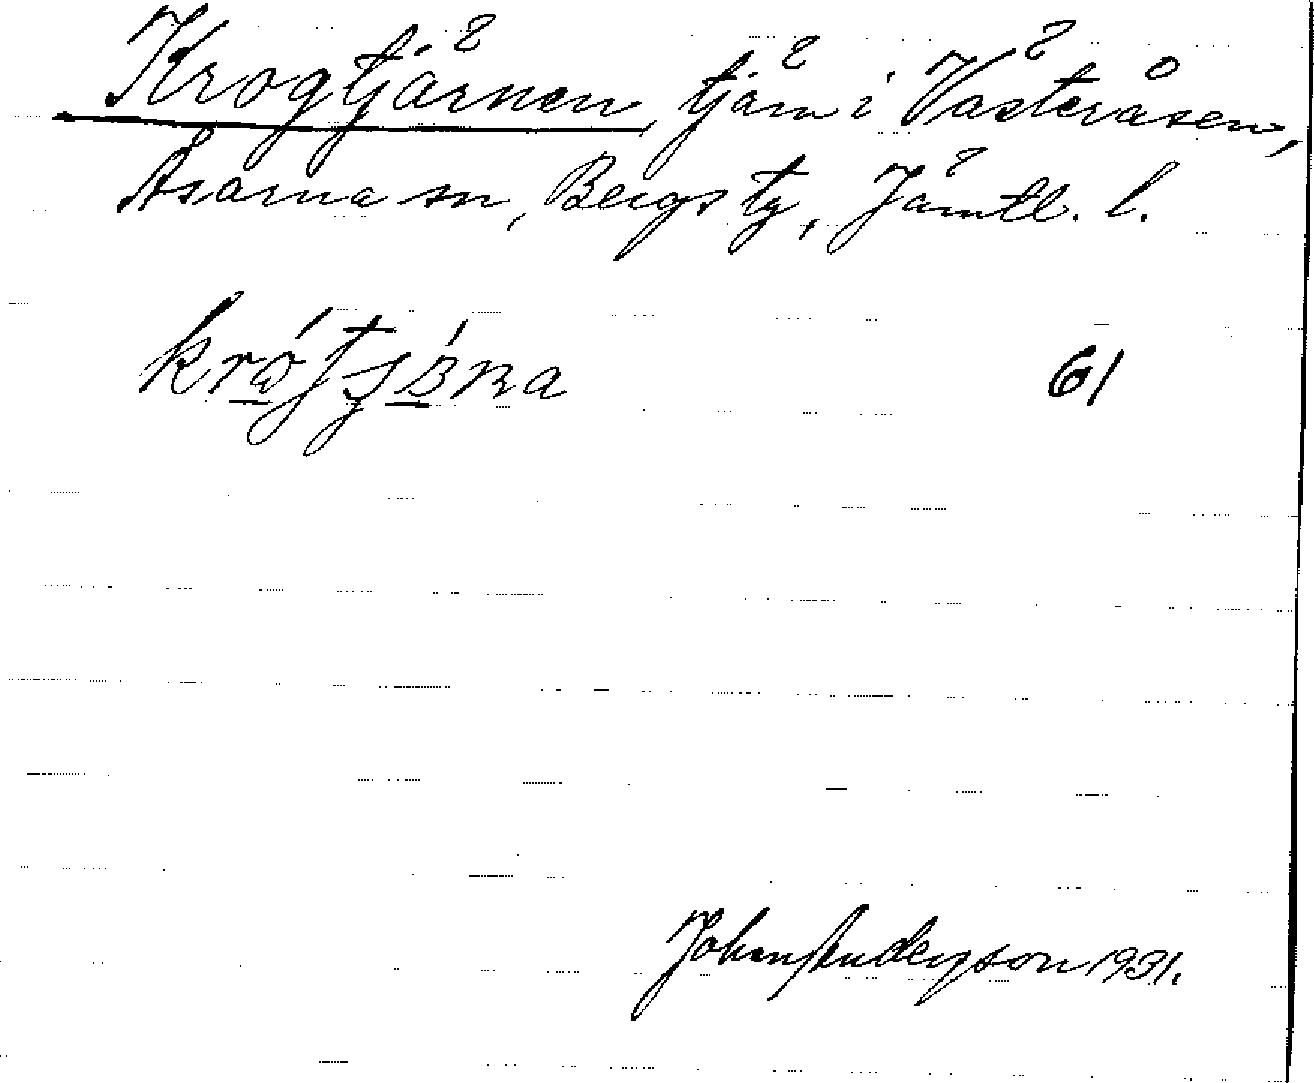 Krogtjärnen, tjärn i Västeråsen,
Åsarna sn, Bergs tg, Jämtl. l.
61
Johan Anderson 1931.